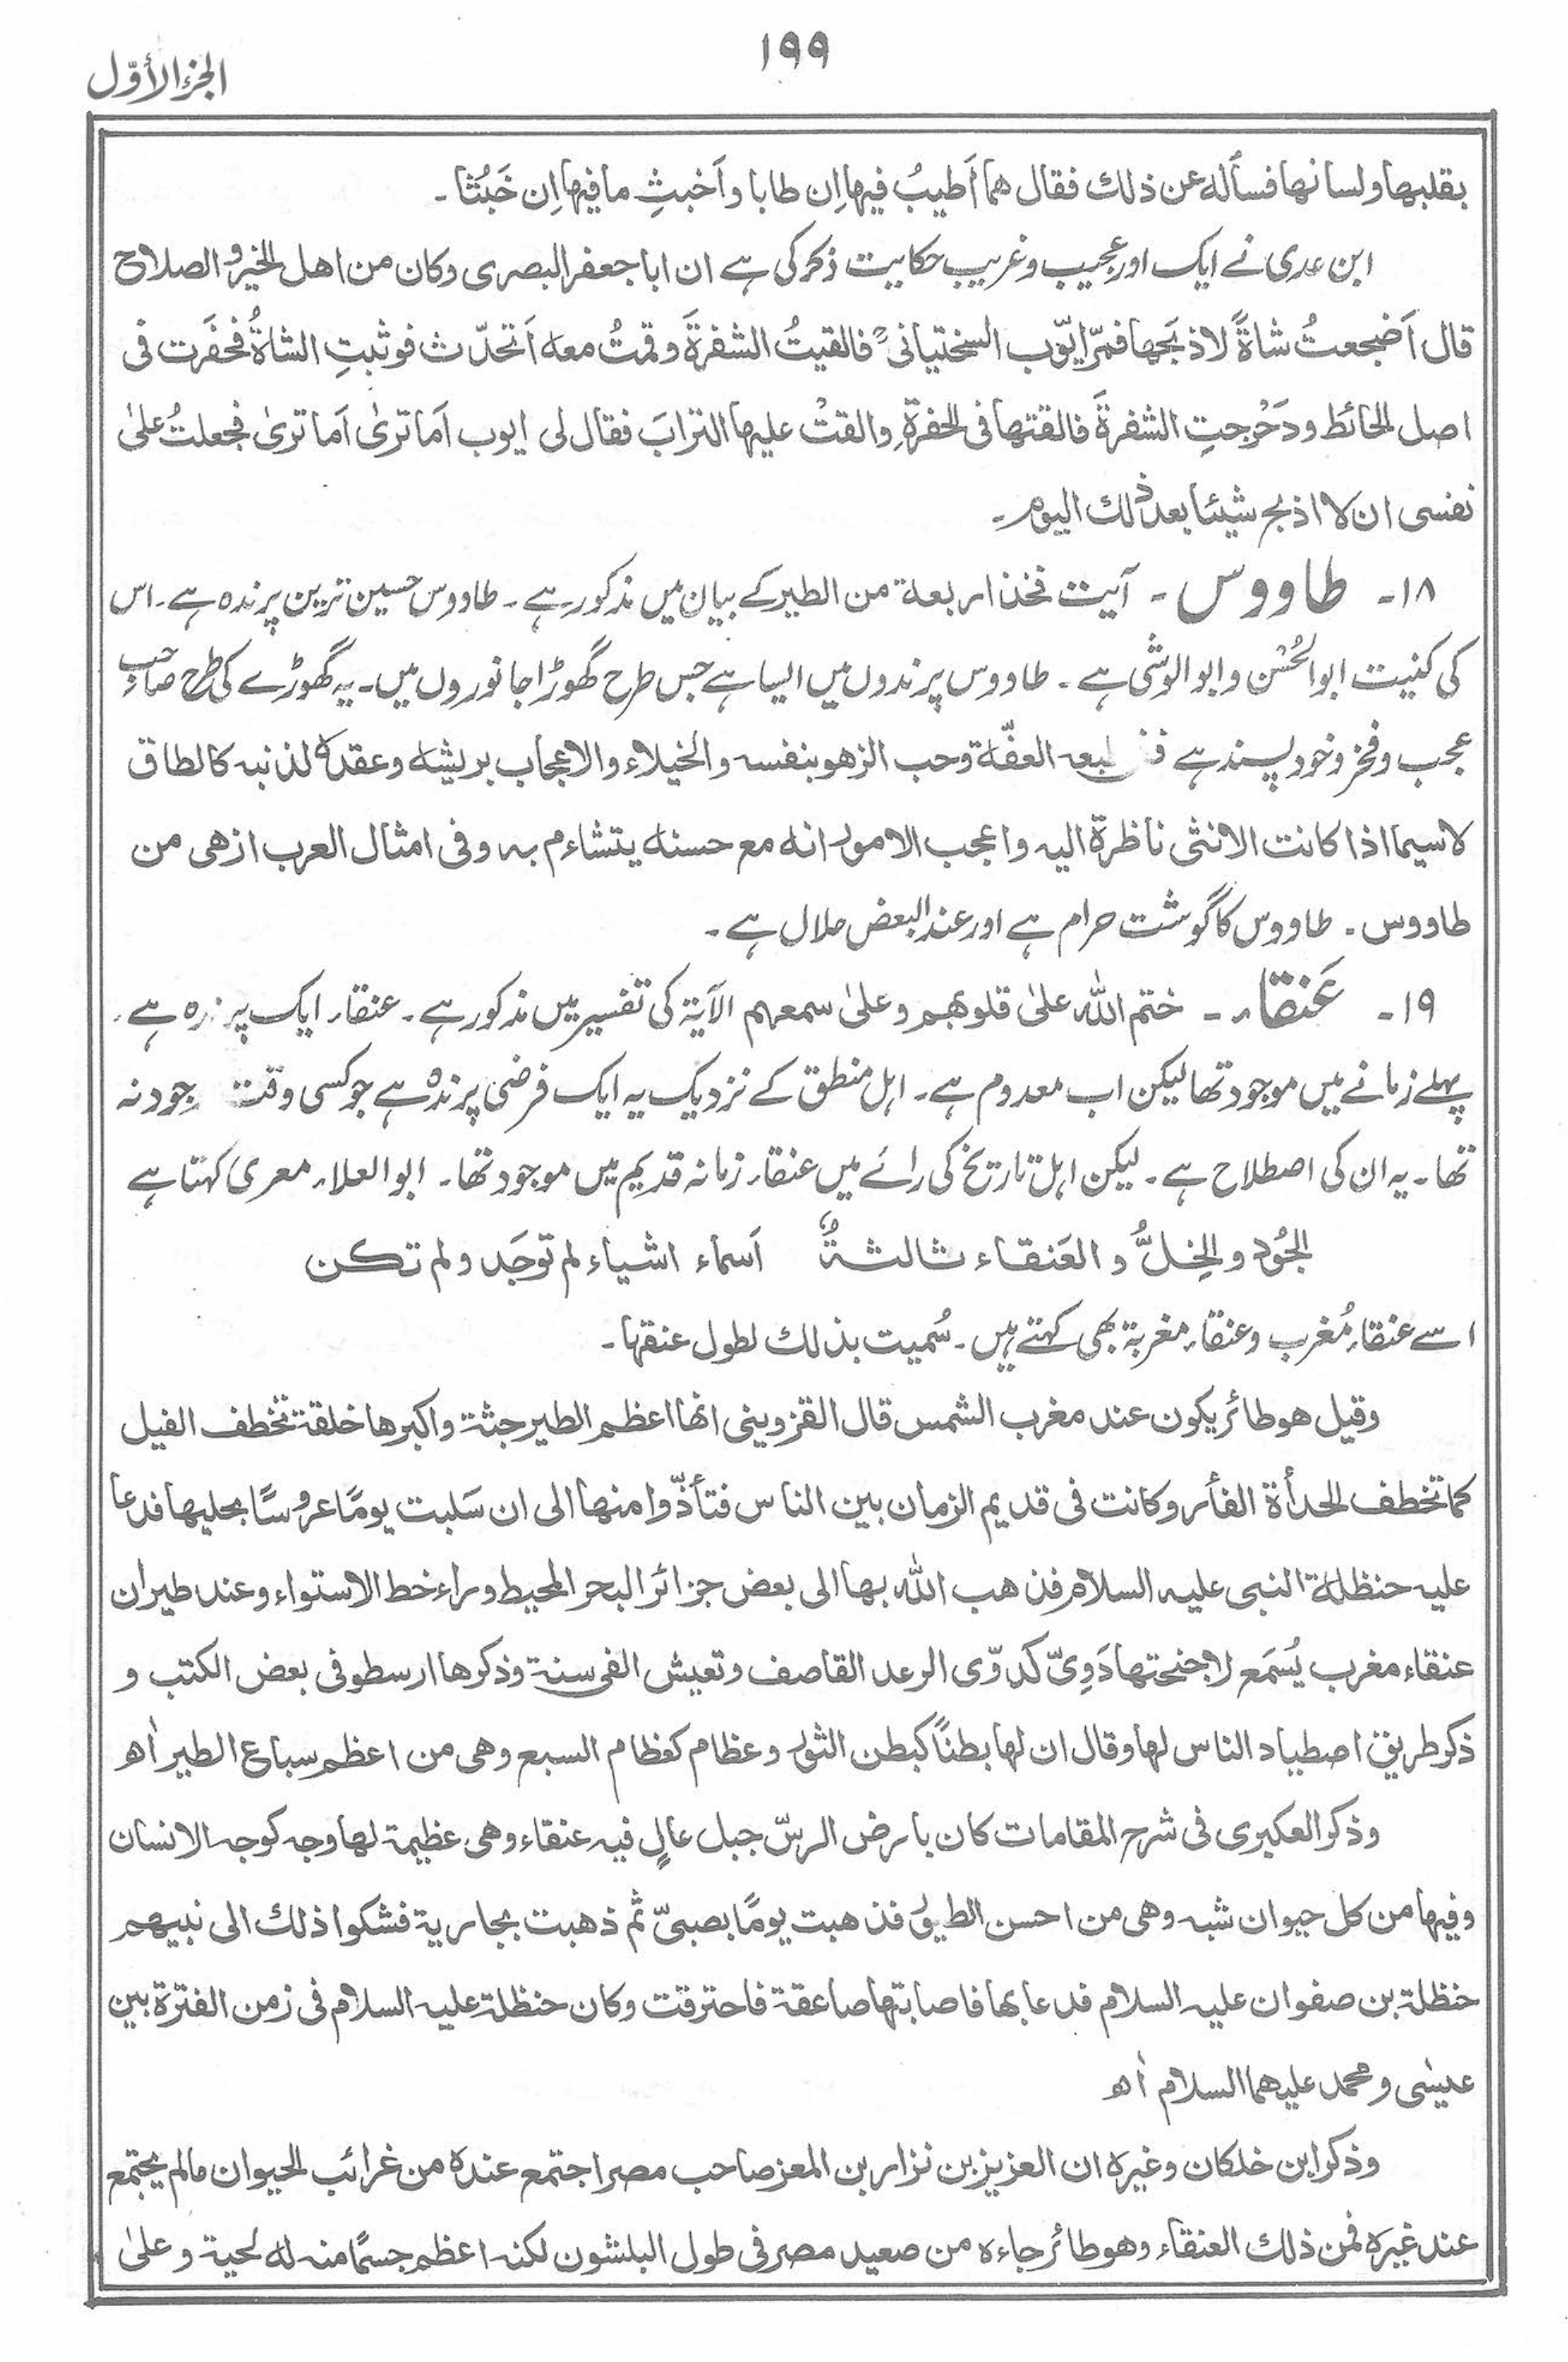 ١٩٩
الجزء الأوّل
بقلبها ولسانها فسأله عن ذلك فقال هما أَطيبُ فيها اِن طابا و اَخبثِ ما فيها اِن خَبُثا ۔
ابن عدی نے ایک اور عجیب و غریب حکایت ذکر کی ہے ان ابا جعفر البصری وکان من اهل الخیر و الصلاح
قال اَضجعتُ شاةً لاذبحَها فمرّ ایّوب السختیانیؒ فالقیتُ الشفرةَ وقمتُ معه اَتحدّث فوثبتِ الشاةُ فحفَرت فی
اصل الحائط ودَحْرجتِ الشفرةَ فالقتها فی الحفرة والقتْ علیها الترابَ فقال لی ایوب اَما تریٰ اَما تریٰ فجعلتُ علیٰ
نفسی ان لا اذبح شیئا بعد ذلك الیوم ۔
١٨۔ طاووس ۔ آیت فخذ اربعة من الطیر کے بیان میں مذکور ہے ۔ طاووس حسین ترین پرندہ ہے ۔ اس
کی کنیت ابو الحُسْن و ابو الوشی ہے ۔ طاووس پرندوں میں ایسا ہے جس طرح گھوڑا جانوروں میں ۔ یہ گھوڑے کی طرح صاحبِ
عجب و فخر و خود پسند ہے العفّة وحب الزهو بنفسه والخیلاء والاعجاب بریشه وعقدہ لذنبه كالطاق
لاسیما اذا کانت الانثی ناظرة الیه واعجب الامور انه مع حسنه یتشاءم به وفی امثال العرب ازهی من
طاووس ۔ طاووس کا گوشت حرام ہے اور عند البعض حلال ہے ۔
١٩۔ عَنقاء ۔ ختم الله علیٰ قلوبهم و علیٰ سمعهم الآیة کی تفسیر میں مذکور ہے ۔ عنقاء ایک پرندہ ہے ۔
پہلے زمانے میں موجود تھا لیکن اب معدوم ہے ۔ اہل منطق کے نزدیک یہ ایک فرضی پرندہ ہے جو کسی وقت موجود نہ
تھا ۔ یہ ان کی اصطلاح ہے ۔ لیکن اہل تاریخ کی رائے میں عنقاء زمانہ قدیم میں موجود تھا ۔ ابو العلاء معری کہتا ہے
الجُود والخِلُّ و العَنقاء ثالثةٌ اَسماء اشیاء لم توجَد ولم تكن
اسے عنقاء مُغرب و عنقاء مغربة بھی کہتے ہیں ۔ سُمیت بذلك لطول عنقها ۔
وقیل هو طائر یکون عند مغرب الشمس قال القزوینی انها اعظم الطیر جثة واکبرها خلقة تخطف الفیل
کما تخطف الحدأة الفأر وکانت فی قدیم الزمان بین الناس فتأذّوا منها الی ان سَلبت یومًا عروسًا بحلیها فدعا
علیه حنظلة النبی علیه السلام فذهب الله بها الی بعض جزائر البحر المحیط وراء خط الاستواء وعند طیران
عنقاء مغرب یُسمَع لاجنحتها دَوِیّ کدوّی الرعد القاصف وتعیش الفی سنة وذکرها ارسطو فی بعض الکتب و
ذکر طریق اصطیاد الناس لها وقال ان لها بطنًا کبطن الثور وعظام کعظام السبع وهی من اعظم سباع الطیر اھ
وذکر العکبری فی شرح المقامات کان بارض الرسّ جبل عالٍ فیه عنقاء وهی عظیمة لها وجه کوجه الانسان
وفیها من کل حیوان شبه وهی من احسن الطیور فذهبت یومًا بصبیّ ثم ذهبت بجاریة فشکوا ذلك الی نبیهم
حنظلة بن صفوان علیه السلام فدعا بها فاصابتها صاعقة فاحترقت وکان حنظلة علیه السلام فی زمن الفترة بین
عیسٰی و محمد علیهما السلام اھ
وذکر ابن خلکان وغیرہ ان العزیز بن نزار بن المعز صاحب مصر اجتمع عندہ من غرائب الحیوان مالم یجتمع
عند غیرہ فمن ذلك العنقاء وهو طائر جاءہ من صعید مصر فی طول البلشون لکنه اعظم جسمًا منه له لحیة و علیٰ